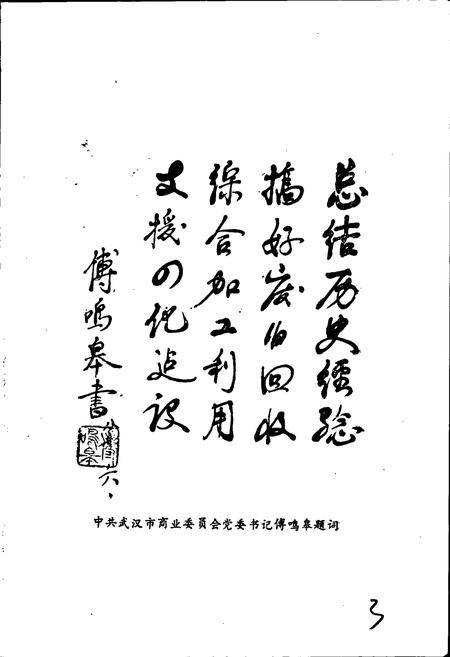 总结历史经验
搞好废旧回收
综合加工利用
支援四化建设
傅鸣皋书
中共武汉市商业委员会党委书记傅鸣皋题词
3